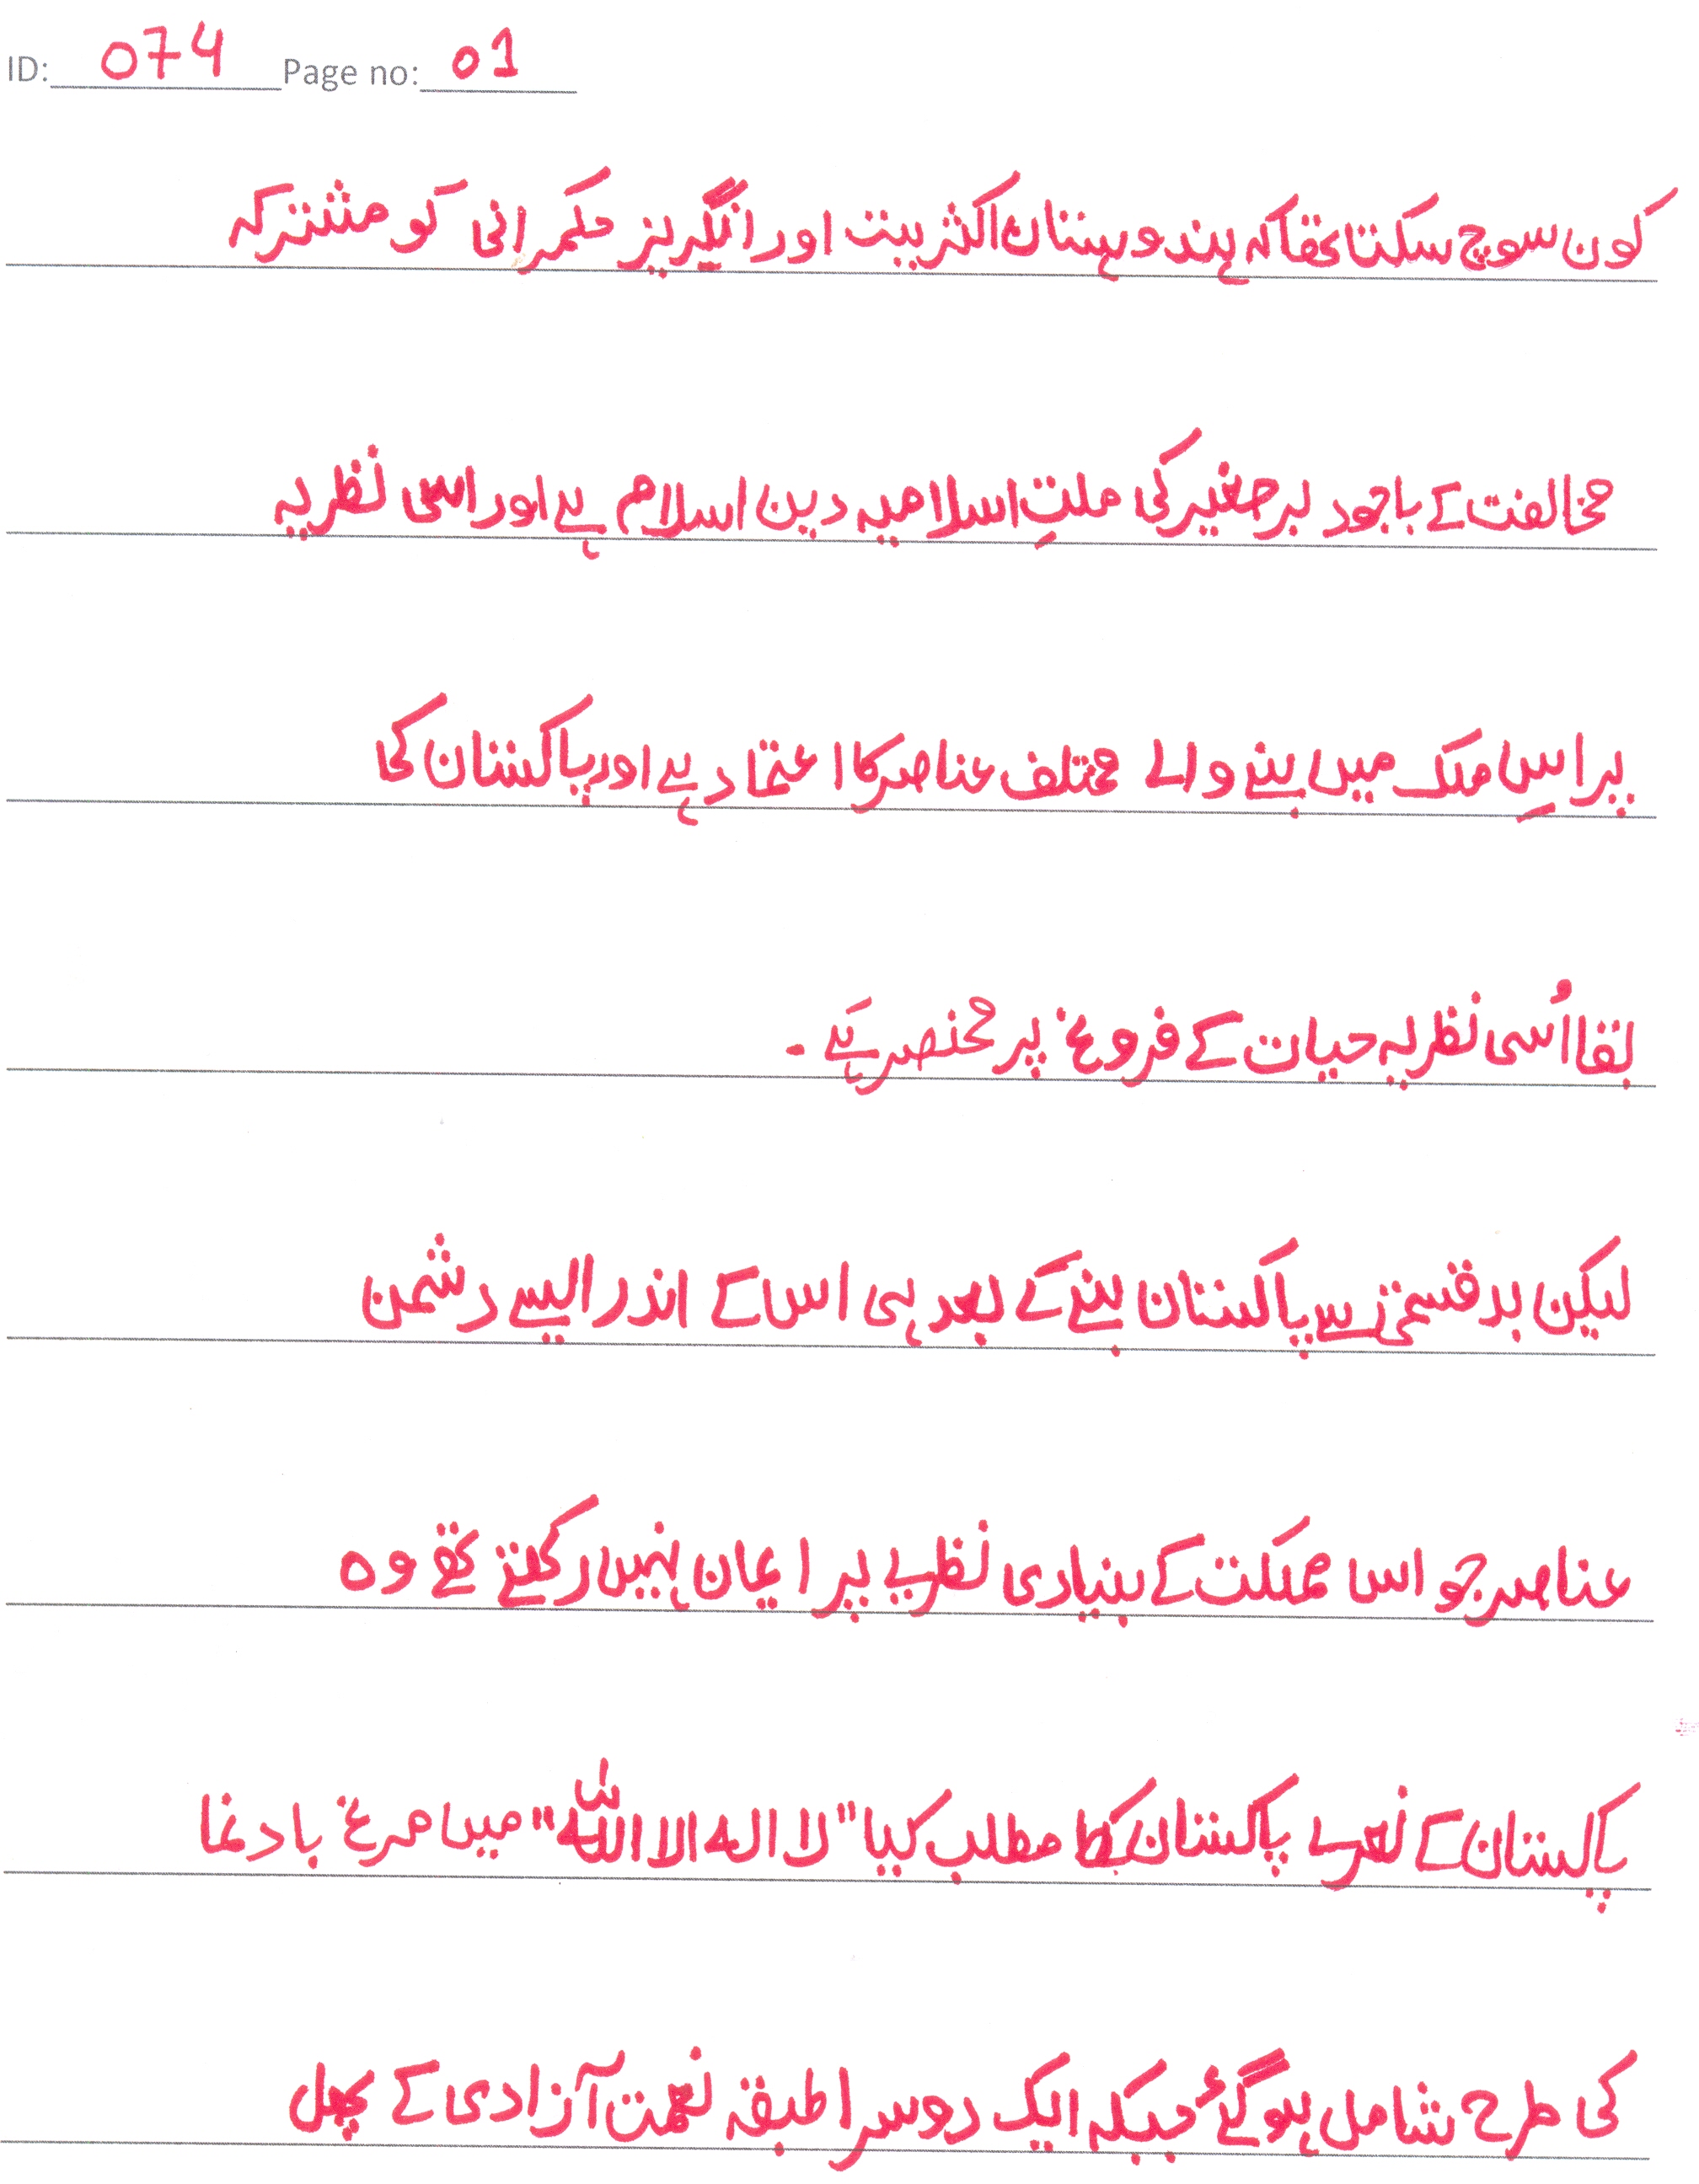 ID: 074 Page no: 01
کون سوچ سکتا تھا کہ ہندوہستان اکثربیت اور انگریز حکمرانی کو مشترکہ
مخالفت کے باجود برصغیر کی ملتِ اسلامیہ دین اسلام ہے اور اسی نظریہ
پر اسِ ملک میں بسنے والے مختلف عناصر کا اعتماد ہے اور پاکستان کی
بقا اُسی نظریہ حیات کے فروغ پر منحصر ہے ۔
لیکن بدقسمتی سے پاکستان بننے کے بعد ہی اس کے اندر ایسے دشمن
عناصر جو اس مملکت کے بنیادی نظریے پر ایمان نہیں رکھتے تھے وہ
پاکستان کے نعرے پاکستان کا مطلب کیا "لا الہ الا اللّٰہ" میں مرغ بادنما
کی طرح شامل ہوگئے جبکہ ایک دوسرا طبقہ نعمت آزادی کے پھل